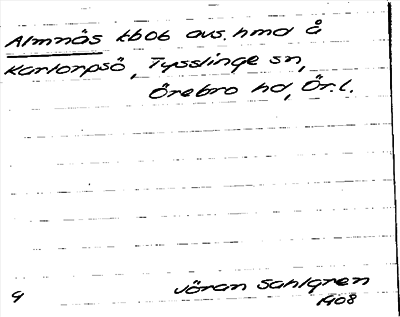 Almnäs tbob avs. hmd å
Karlorpsö, Tysslinge sn,
Örebro hd, Ör. l.
Jöran Sahlgren
1908
9